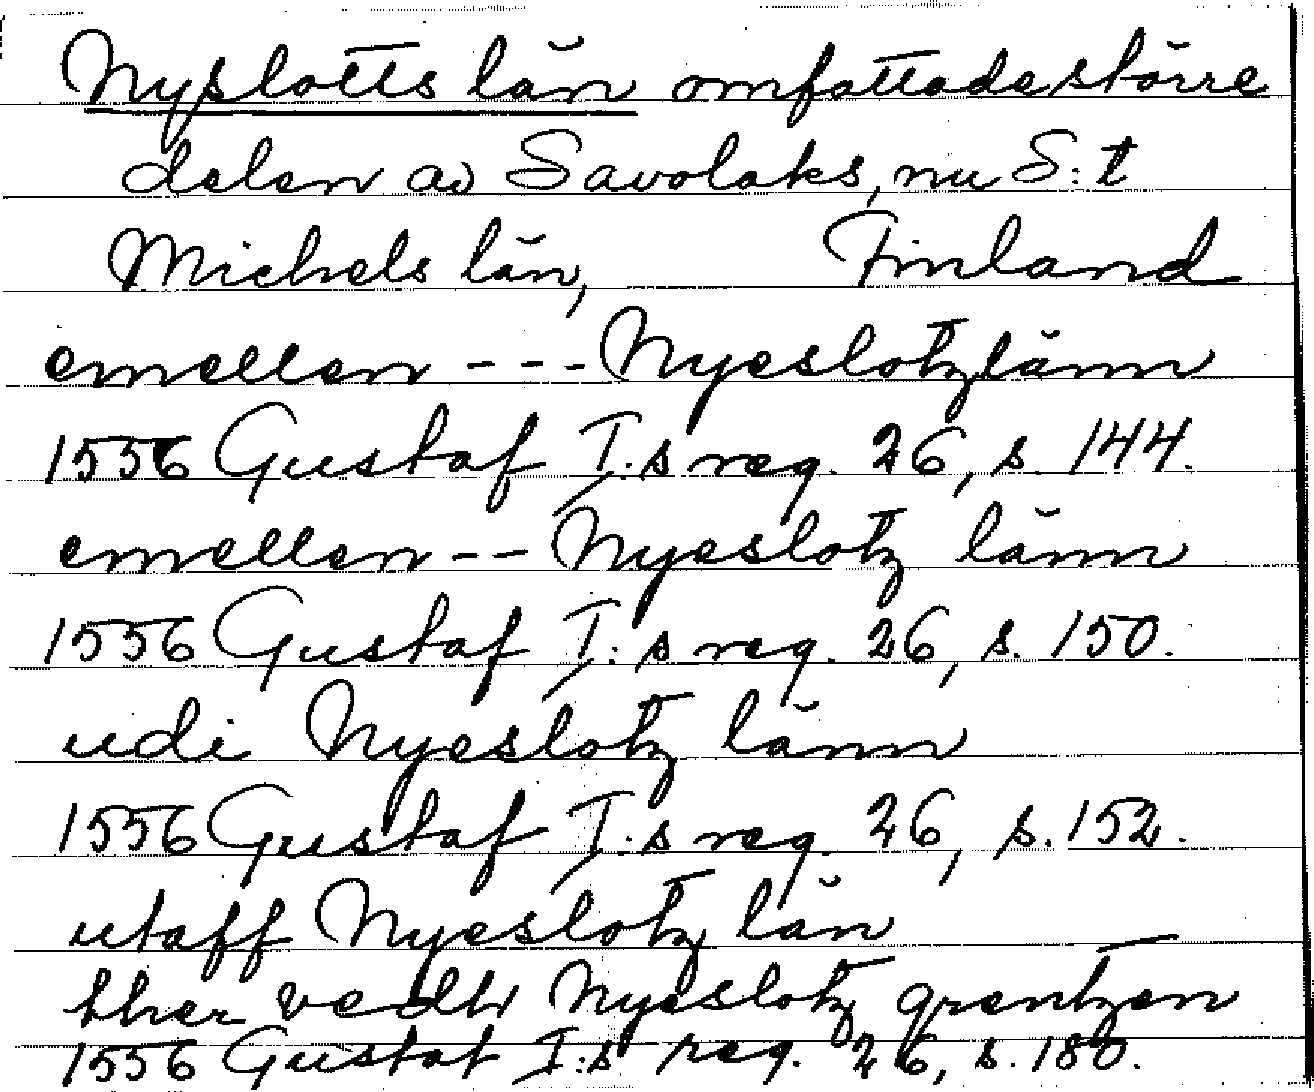 Nyslotts län omfattade större
delen av Savolaks, nu S:t
Michels län, Finland
emellan --- Nyeslotzlänn
1556 Gustaf I:s reg. 26, s. 144.
emellan -- Nyeslotz länn
1556 Gustaf I:s reg. 26, s. 150.
udi Nyeslotz länn
1556 Gustaf I:s reg. 26, s. 152.
utaff Nyeslotz län
ther vedh Nyeslotz grentzen
1556 Gustaf I:s reg. 26, s. 180.